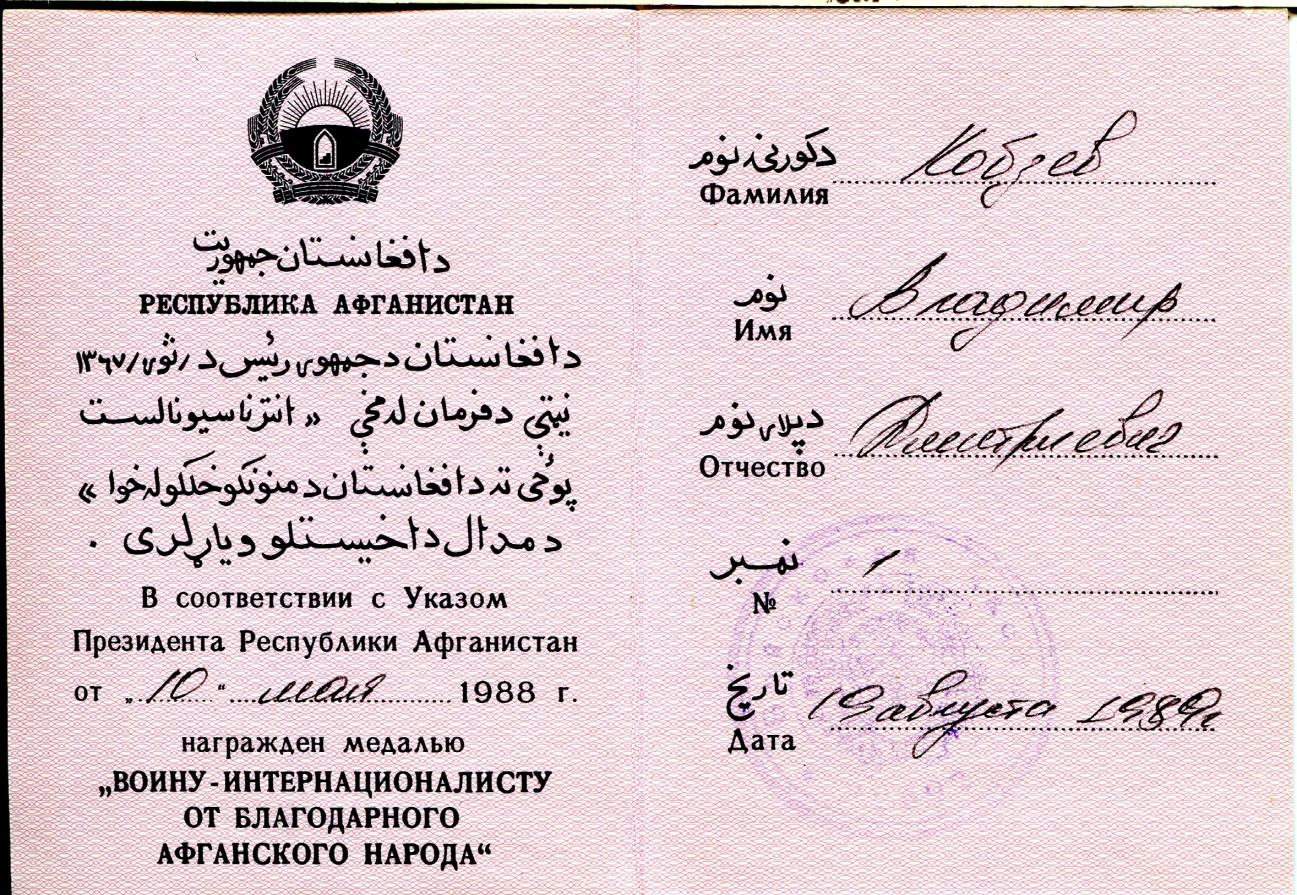 د افغانستان جمهوریت
РЕСПУБЛИКА АФГАНИСТАН
د افغانستان د جمهوری رئیس د /ثور/ ۱۳۶۷
نیټې د فرمان له مخې « انترناسیونالست
پوځی ته د افغانستان د منونکو خلکو له خوا »
د مدال د اخیستلو ویاړ لری .
В соответствии с Указом
Президента Республики Афганистан
от „10“ мая 1988 г.
награжден медалью
„ВОИНУ-ИНТЕРНАЦИОНАЛИСТУ
ОТ БЛАГОДАРНОГО
АФГАНСКОГО НАРОДА“
د کورنۍ نوم
Фамилия Кобзев
نوم
Имя Владимир
د پلار نوم
Отчество Дмитриевич
نمبر
№ 1
تاریخ
Дата 19 августа 1989г